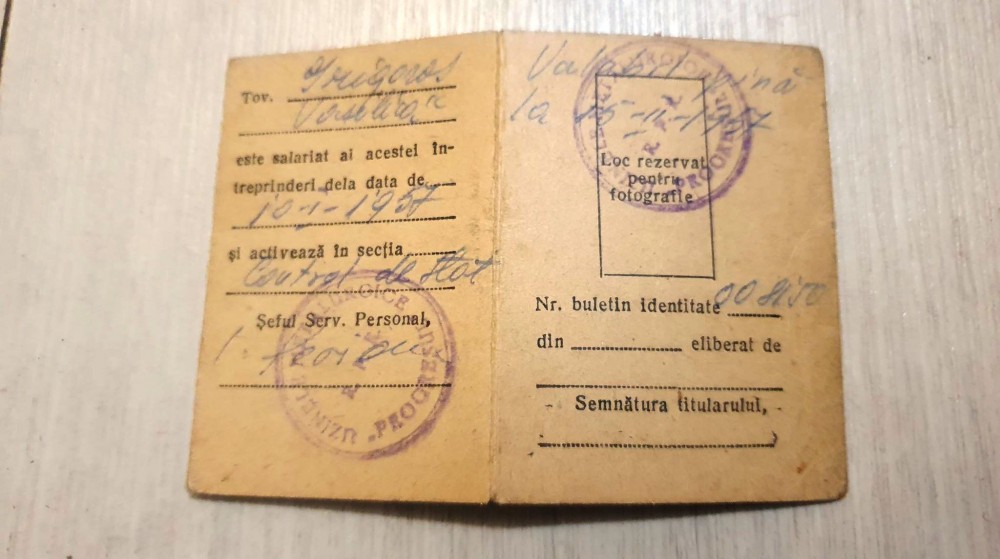 Tov. Grigoraș
Vasilica
este salariat al acestei în-
treprinderi dela data de
10-I-1957
și activează în secția
Control de Stat
Șeful Serv. Personal,
UZINELE METALURGICE "PROGRESUL"
R P R
Valabil până
la 15-II-1957
UZINELE METALURGICE "PROGRESUL"
R P R
Loc rezervat
pentru
fotografie
Nr. buletin identitate
din eliberat de
Semnătura titularului,